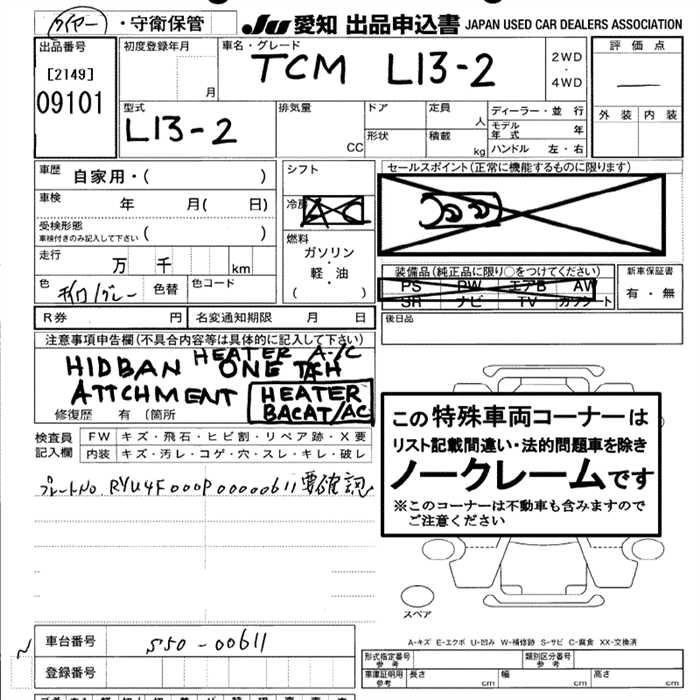 ワイヤー ・守衛保管
JU 愛知 出品申込書 JAPAN USED CAR DEALERS ASSOCIATION
出品番号
[2149]
09101
初度登録年月
月
車名・グレード
TCM L13-2
2WD
・
4WD
評 価 点
外 装 内 装
型式
L13-2
排気量
CC
ドア
形状
定員
人
積載
kg
ディーラー・並 行
モデル年式 年
ハンドル 左・右
車歴
自家用・( )
車検 年 月( 日)
受検形態
車検付きのみ記入して下さい ( )
走行 万 千 km
色 グレー 色替 色コード
シフト
冷房
AC
燃料
ガソリン
・
軽・油
( )
セールスポイント(正常に機能するものに限ります)
装備品(純正品に限り○をつけてください)
PS PW エアB AW
SR ナビ TV カワシート
新車保証書
有・無
R券 円 名変通知期限 月 日
後日品
注意事項申告欄(不具合内容等は具体的に記入して下さい)
HEATER A-/C
HIDBAN ONE TACH
ATTCHMENT HEATER
BACAT/AC
修復歴 有 〔箇所
検査員
記入欄
FW キズ・飛石・ヒビ割・リペア跡・X要
内装 キズ・汚レ・コゲ・穴・スレ・キレ・破レ
プレートNo. RYU4F000P00000611要確認
この特殊車両コーナーは
リスト記載間違い・法的問題車を除き
ノークレームです
※このコーナーは不動車も含みますので
ご注意ください
スペア
A-キズ E-エクボ U-凹み W-補修跡 S-サビ C-腐食 XX-交換済
車台番号 S50-00611
登録番号
形式指定番号
参 考
類別区分番号
参 考
車庫証明用
参 考
長さ cm 幅 cm 高さ cm